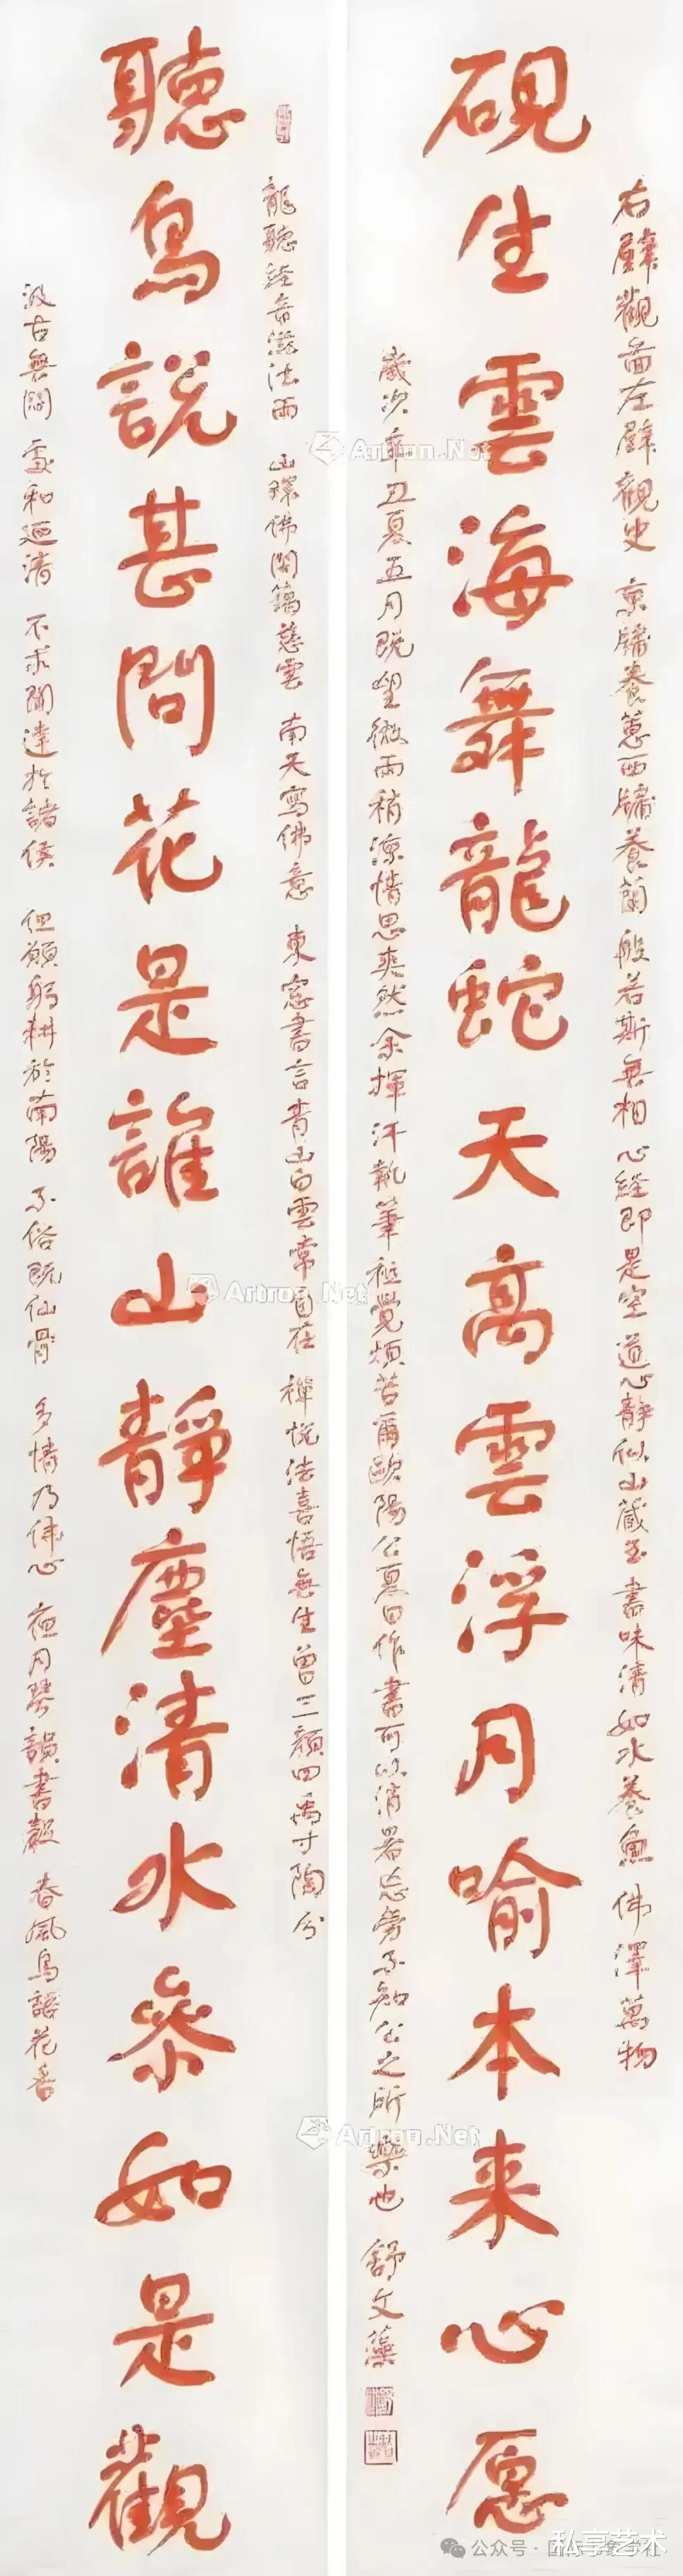 右壁觀畫左壁觀史 東牖養蕙西牖養蘭 般若斯無相 心經即是空 道心靜似山藏玉 書味清如水養魚 佛澤萬物
硯生雲海舞龍蛇天高雲浮月喻本来心愿
歲次辛丑夏五月既望微雨稍涼情思爽然余揮汗執筆祗覺煩苦爾歐陽公夏日作書可以消暑忘勞不知公之所樂也 舒文藻
龍聽經音灑法雨 山環佛閣籠慈雲 南天寫佛意 東窓書言 青山白雲常自在 禪悅法喜悟無生 曾三顏四禹寸陶分
聽鳥説甚問花是誰山靜塵清水參如是觀
汲古無悶 處和迺清 不求聞達於諸侯 但願躬耕於南陽 不俗既仙骨 多情乃佛心 夜月琴韻書聲 春風鳥語花香
Artron.Net
Artron.Net
Artron.Net
公众号·国
私享艺术